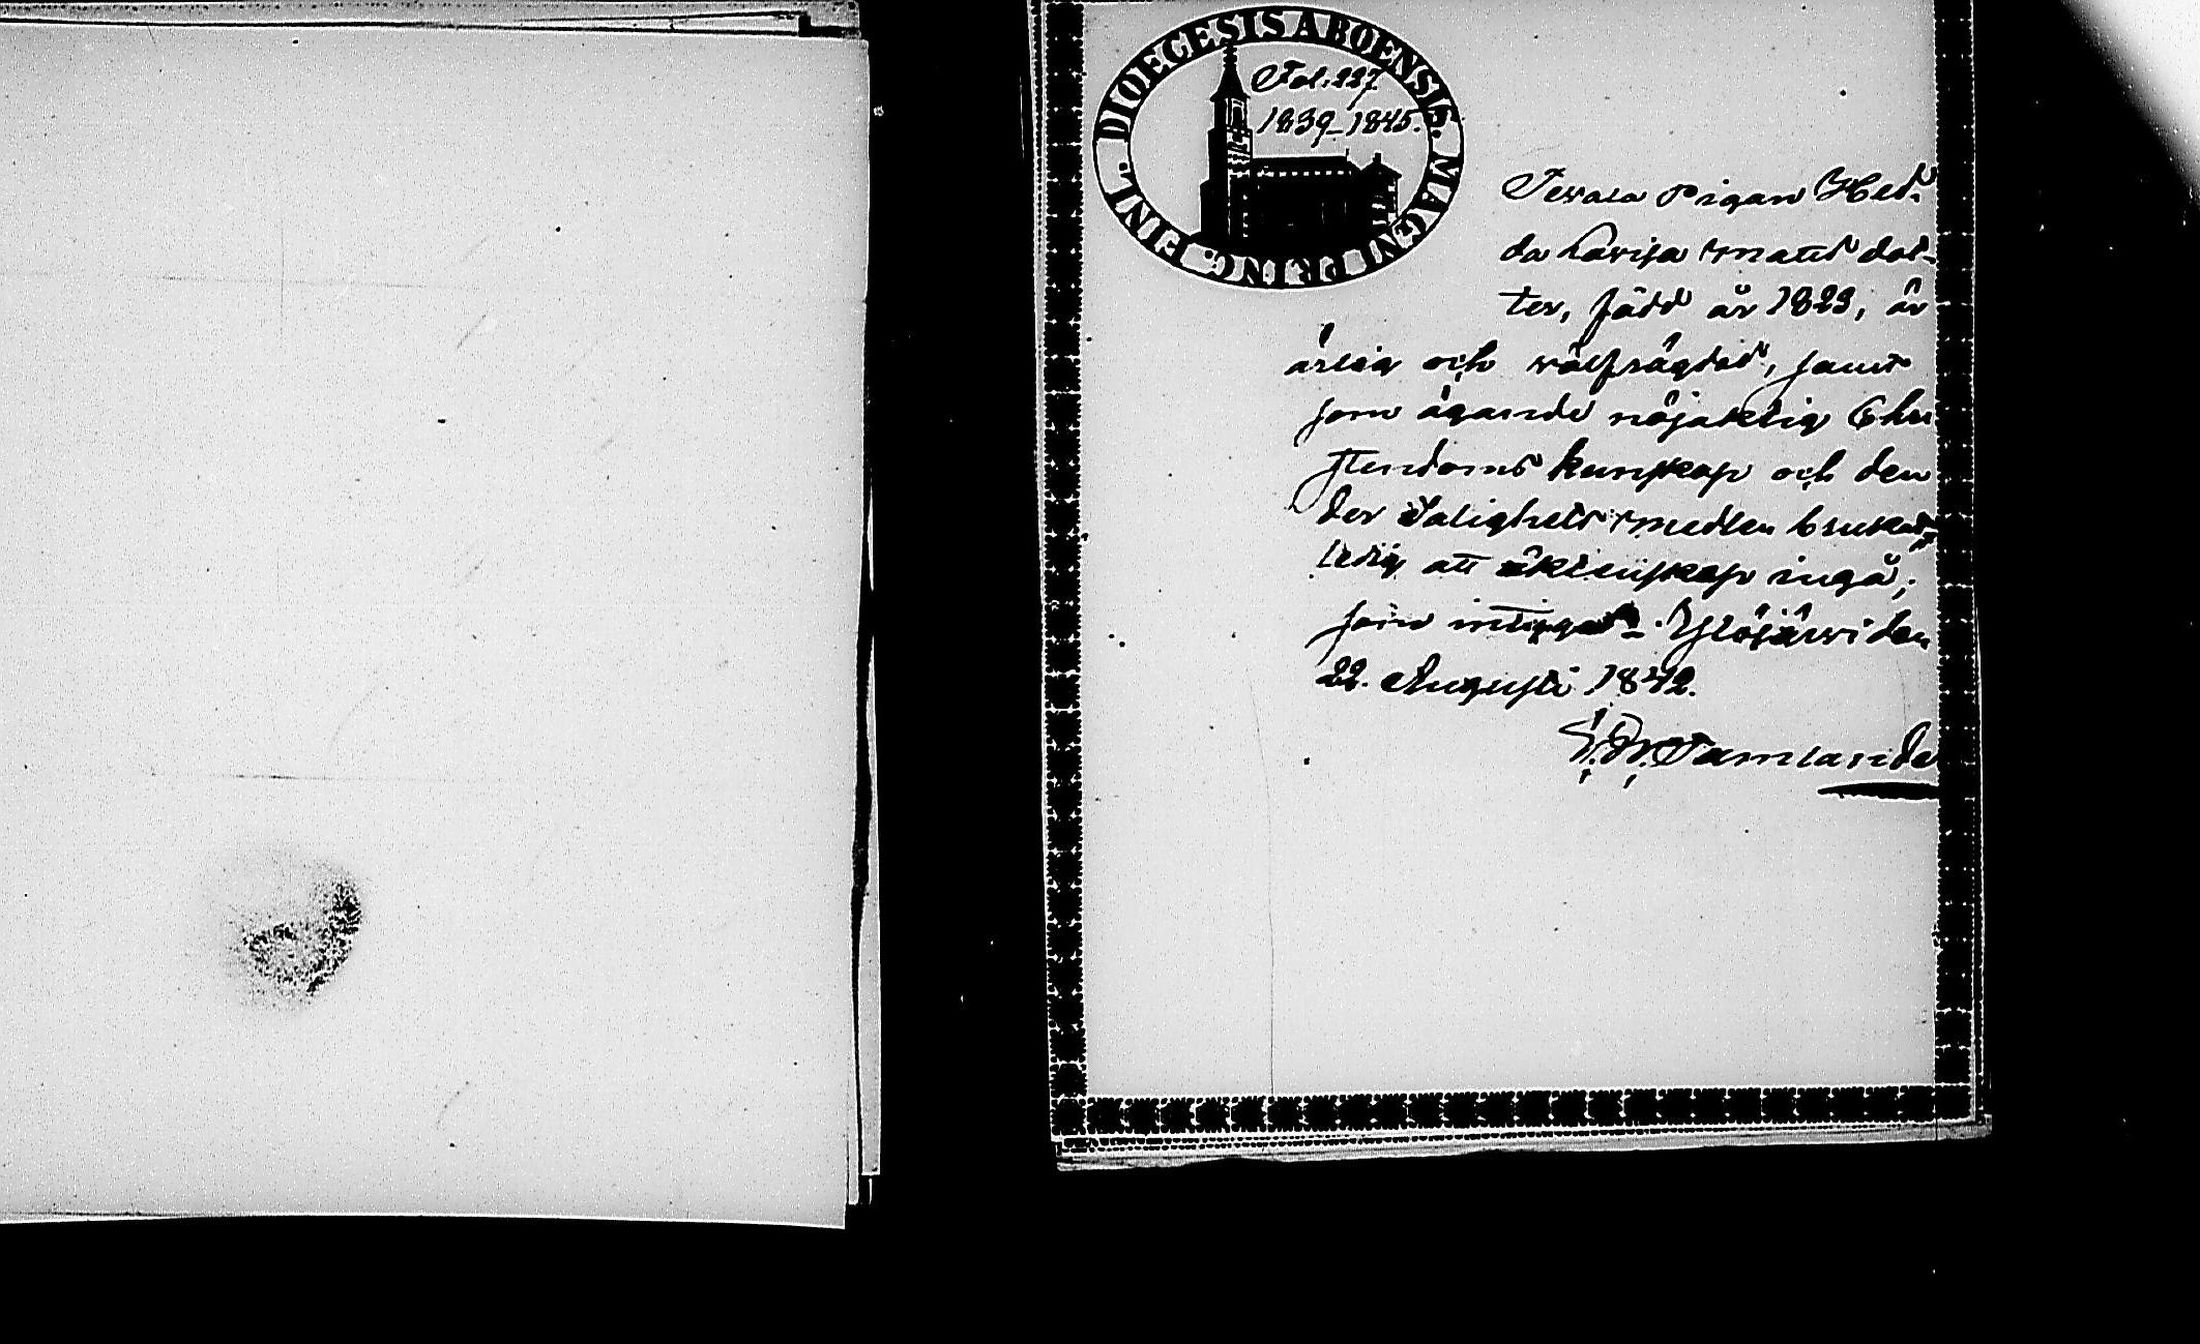 DIOECESIS ABOENSIS. MAGNI PRINC. FINL.
Fol. 227
1839-1845.
Pigan Hed-
da Lovisa Matts dot-
ter, född år 1823, är
ärlig och välfrägdad, samt
som ägande nöjaktig Chri
stendoms kunskap och den
der Salighets medlen brukat,
ledig att äktenskap ingå;
som intygas. Ylöjärvi den
22. Augusti 1842.